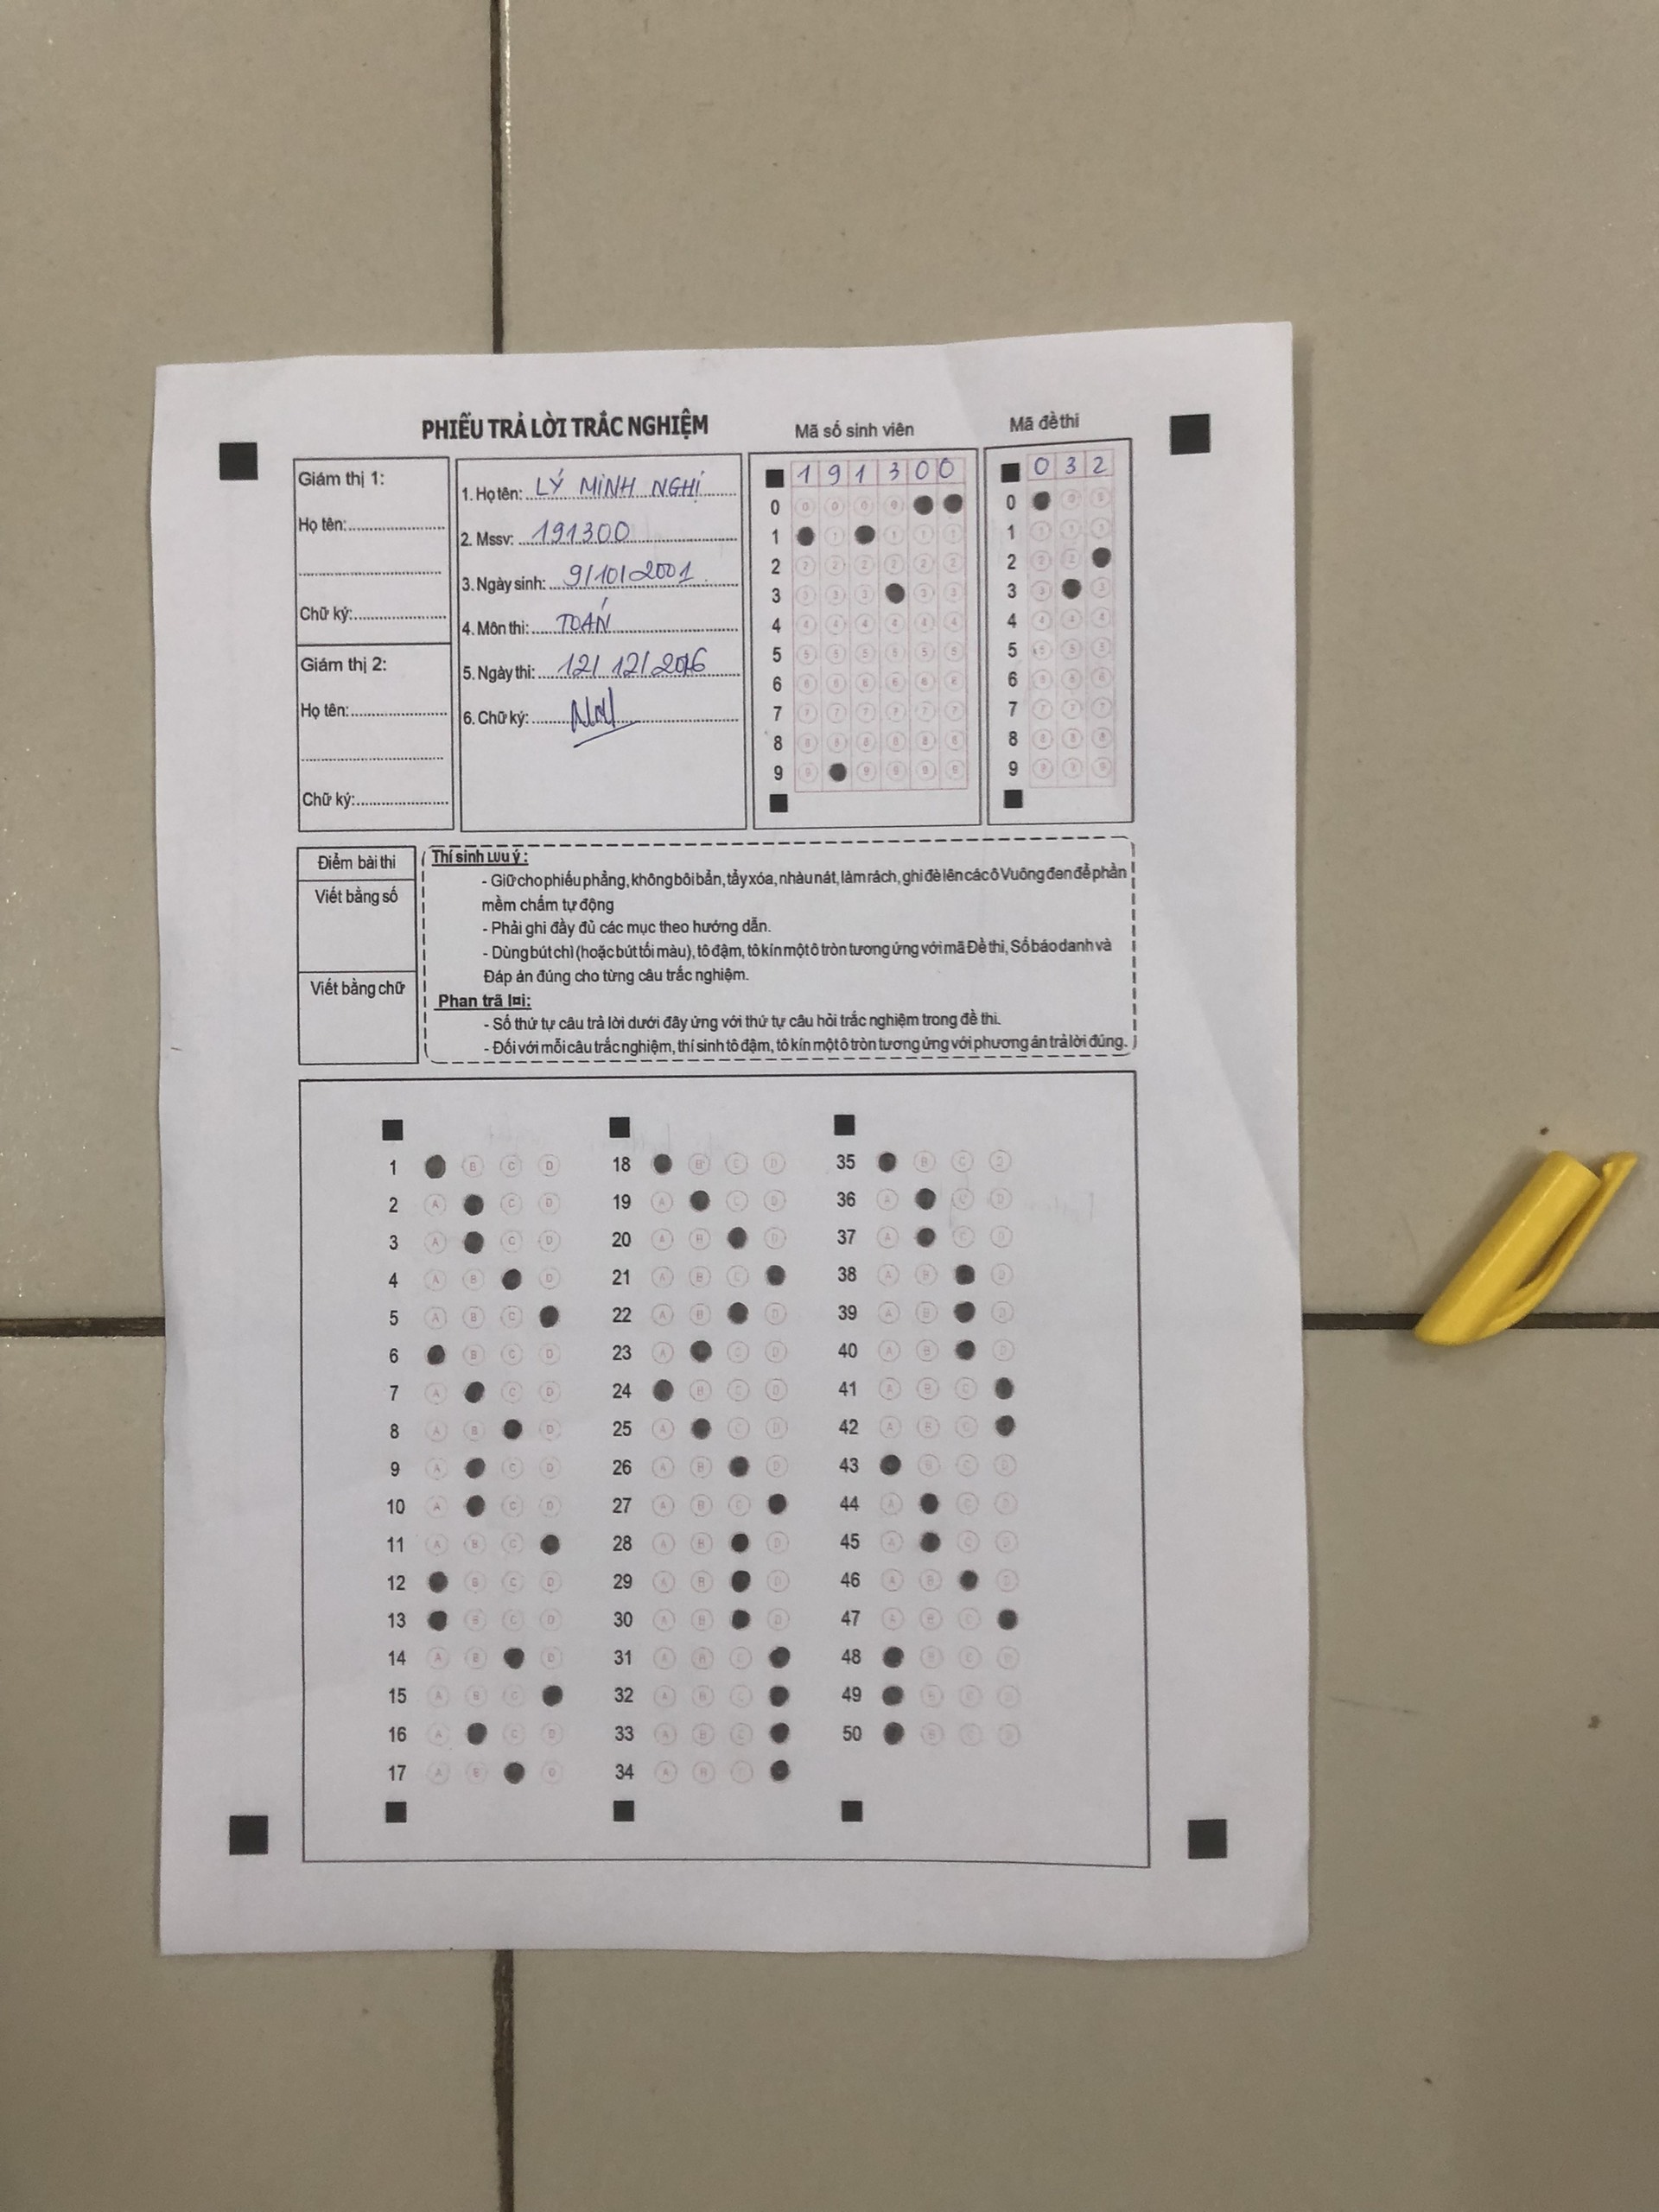 PHIẾU TRẢ LỜI TRẮC NGHIỆM
Mã số sinh viên
Mã đề thi
Giám thị 1:
Họ tên:
Chữ ký:
Giám thị 2:
Họ tên:
Chữ ký:
1. Họ tên: LÝ MINH NGHỊ
2. Mssv: 191300
3. Ngày sinh: 9/10/2001
4. Môn thi: TOÁN
5. Ngày thi: 12/12/2016
6. Chữ ký:
1 9 1 3 0 0
0 3 2
0
1
2
3
4
5
6
7
8
9
0
1
2
3
4
5
6
7
8
9
Điểm bài thi
Viết bằng số
Viết bằng chữ
Thí sinh Lưu ý:
- Giữ cho phiếu phẳng, không bôi bẩn, tẩy xóa, nhàu nát, làm rách, ghi đè lên các ô Vuông đen để phần
mềm chấm tự động
- Phải ghi đầy đủ các mục theo hướng dẫn.
- Dùng bút chì (hoặc bút tối màu), tô đậm, tô kín một ô tròn tương ứng với mã Đề thi, Số báo danh và
Đáp án đúng cho từng câu trắc nghiệm.
Phan trã lơi:
- Số thứ tự câu trả lời dưới đây ứng với thứ tự câu hỏi trắc nghiệm trong đề thi.
- Đối với mỗi câu trắc nghiệm, thí sinh tô đậm, tô kín một ô tròn tương ứng với phương án trả lời đúng.
1 B C D
2 A C D
3 A C D
4 A B D
5 A B C
6 B C D
7 A C D
8 A B D
9 A C D
10 A C D
11 A B C
12 B C D
13 B C D
14 A B D
15 A B C
16 A C D
17 A B D
18 B C D
19 A C D
20 A B D
21 A B C
22 A B D
23 A C D
24 B C D
25 A C D
26 A B D
27 A B C
28 A B D
29 A B D
30 A B D
31 A B C
32 A B C
33 A B C
34 A B C
35 B C D
36 A C D
37 A C D
38 A B D
39 A B D
40 A B D
41 A B C
42 A B C
43 B C D
44 A C D
45 A C D
46 A B D
47 A B C
48 B C D
49 B C D
50 B C D